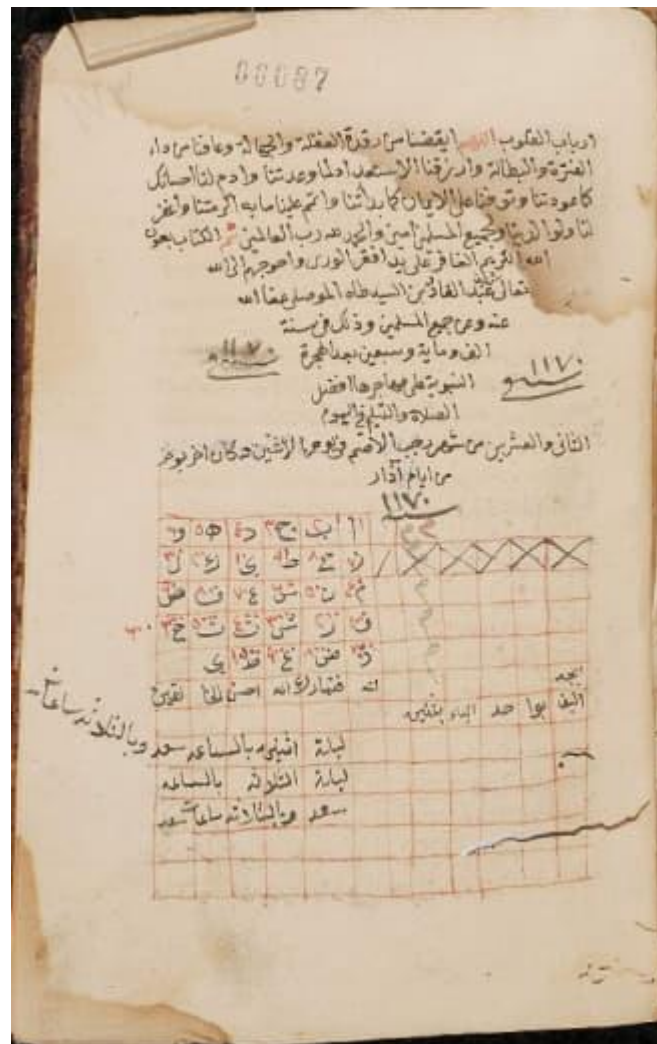 00087
ارباب القلوب اللهم ايقضنا من رقدة الغفلة والجهالة وعافنا من داء
الفترة والبطالة وارزقنا الاستعداد لما وعدتنا وادم لنا احسانك
كما عودتنا وتوفنا على الايمان كما بدأتنا واتمم علينا ما به اكرمتنا واغفر
لنا ولوالدينا ولجميع المسلمين امين والحمد لله رب العالمين تم الكتاب بعون
الله الكريم الغافر على يد افقر الورى واحوجهم الى الله
تعالى عبد القادر بن السيد طه الموصلي عفا الله
عنه وعن جميع المسلمين وذلك في سنة
الف وماية وسبعين بعد الهجرة
سنة ١١٧٠
النبوية على مهاجرها افضل
سنة ١١٧٠
الصلاة والتسليم في اليوم
الثاني والعشرين من شهر رجب الأصم في يوم الاثنين وكان اخر يوم
من ايام آذار
١١٧٠
ا١ ب٢ ج٣ د٤ ه٥ و٦
الله احسن
ابجد
الف بواحد الباء بثنين
ليلة اثنين بالساعه سعد وبالثلاثه ساعات
ليلة الثلاثه بالساعه
سعد وبالثلاثه ساعات سعد